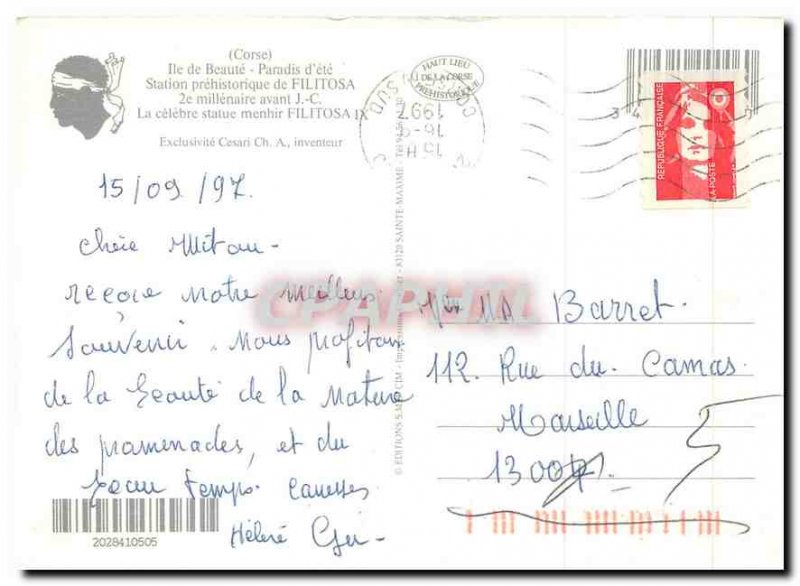 (Corse)
Ile de Beauté - Paradis d'été
Station préhistorique de FILITOSA
2e millénaire avant J.-C.
La célèbre statue menhir FILITOSA IX
Exclusivité Cesari Ch. A., inventeur
HAUT LIEU
DE LA CORSE
PRÉHISTORIQUE
1997
REPUBLIQUE FRANÇAISE
LA POSTE
15/09/97.
Chère Mitou -
reçois notre meilleur
souvenir. Nous profitons
de la beauté de la Nature
des promenades, et du
beau temps. Caresses
Hélène Guy -
© EDITIONS S.M.
- 83120 SAINTE-MAXIME
CPAPHIL
Mme MA Barret.
112. Rue du Camas.
Marseille
1300
5
2028410505